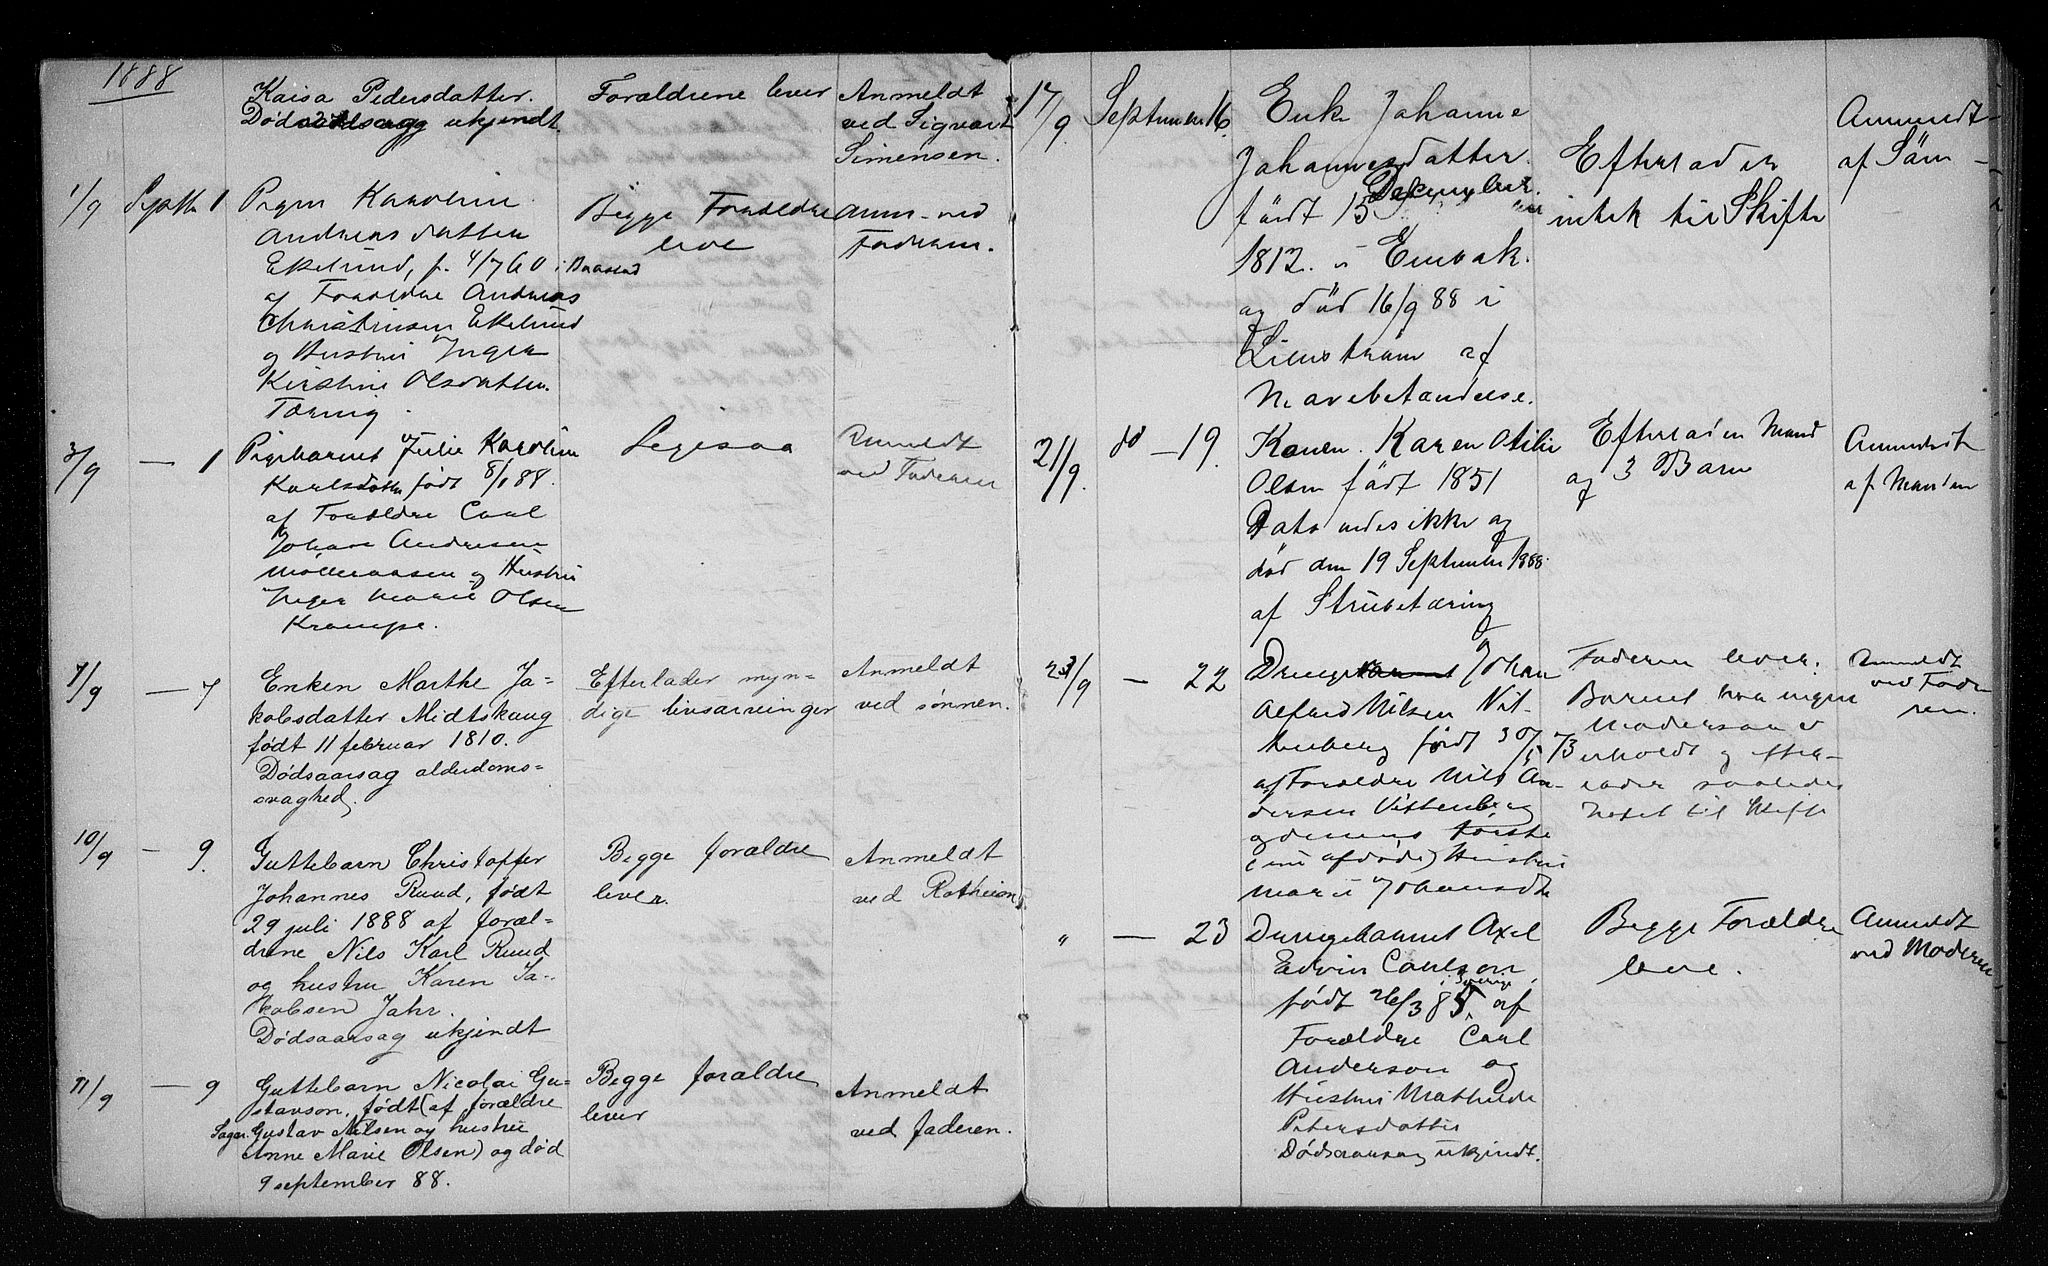 1888
Kaisa Pedersdatter.
Dødsaarsag ukjendt.
Forældrene lever
Anmeldt
ved Sigvart
Simensen.
1/9
Septb 1
Pigen Karoline
Andreasdatter
Ekelund, f. 4/7 60 i
af Forældre Andreas
Christensen Ekelund
og Hustru Inger
Kirstine Olsdatter.
Tæring.
Begge Forældre
leve
Anm. ved
Faderen.
3/9
— 1
Pigebarnet Julie Karoline
Karlsdatter født 8/1 88.
af Forældre Carl
Johan Andresen
og Hustru
Inger Marie Olsen
Krampe.
Ligesaa
Anmeldt
ved Faderen
7/9
— 7
Enken Marthe Ja-
kobsdatter Midtskaug
født 11 februar 1810.
Dødsaarsag alderdoms-
svaghed.
Efterlader myn-
dige livsarvinger
Anmeldt
ved sønnen.
10/9
— 9.
Guttebarn Christoffer
Johannes Ruud, født
29 juli 1888 af foræl-
drene Nils Karl Ruud
og hustru Karen Ja-
kobsen Jahr.
Dødsaarsag ukjendt
Begge forældre
lever.
Anmeldt
ved
11/9
— 9
Guttebarn Nicolai Gu-
stavson, født (af forældre
Gustav Nilsen og hustru
Anne Marie Olsen) og død
9 september 88.
Begge forældre
lever
Anmeldt
ved faderen.
17/9.
September 16.
Enke Johanne
Johannesdatter.
født 15 Desember
1812. i Enebak.
og død 16/9 88 i
Lillestrøm af
Efterlader
intet til Skifte
Anmeldt
af Søn
21/9.
do — 19.
Konen. Karen Otilie
Olsen født 1851
Dato vides ikke og
død den 19 September 1888.
af Strubetæring
Efterlader Mand
og 3 Barn
Anmeldt
af Manden
23/9
— 22
Johan
Alfred Nilsen Vit-
tenberg født 30/5 73
af Forældre Nils An-
dersen Vittenberg
og dennes første
(nu afdøde) Hustru
Marie Johansdtr
Faderen lever.
Barnet har ingen
Modersarv
erholdt og efter-
lader saaledes
Intet til Skifte
Anmeldt
ved Fade
ren.
" — 23
Drengebarnet Axel
Edvin Carlson,
i Sverige
født 26/3 85 af
Forældre Carl
Anderson og
Hustru Mathilde
Petersdatter
Dødsaarsag ukjendt.
Begge Forældre
leve.
Anmeldt
ved Moderen